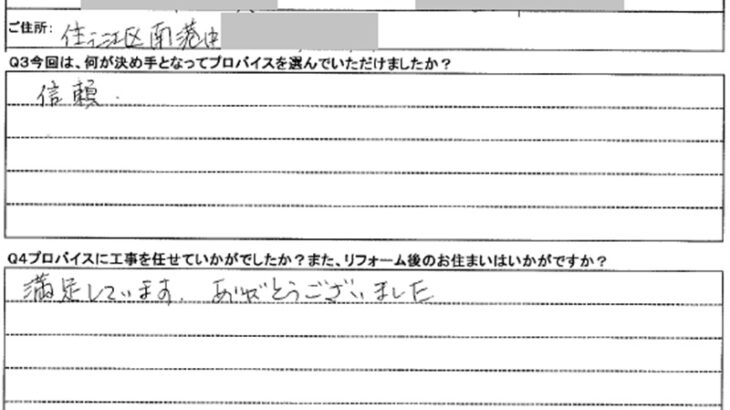 ご住所: 住之江区南港中
Q3今回は、何が決め手となってプロバイスを選んでいただけましたか？
信頼.
Q4プロバイスに工事を任せていかがでしたか？また、リフォーム後のお住まいはいかがですか？
満足しています. ありがとうございました